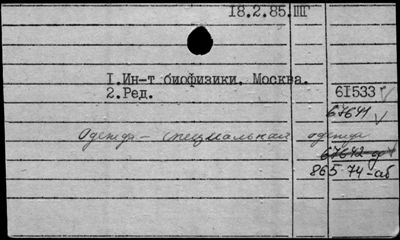 18.2.85.ШГ
1.Ин-т биофизики. Москва.
2.Ред.
61533
67641
Одежда - специальная одежда
67642-д
865·74-аб